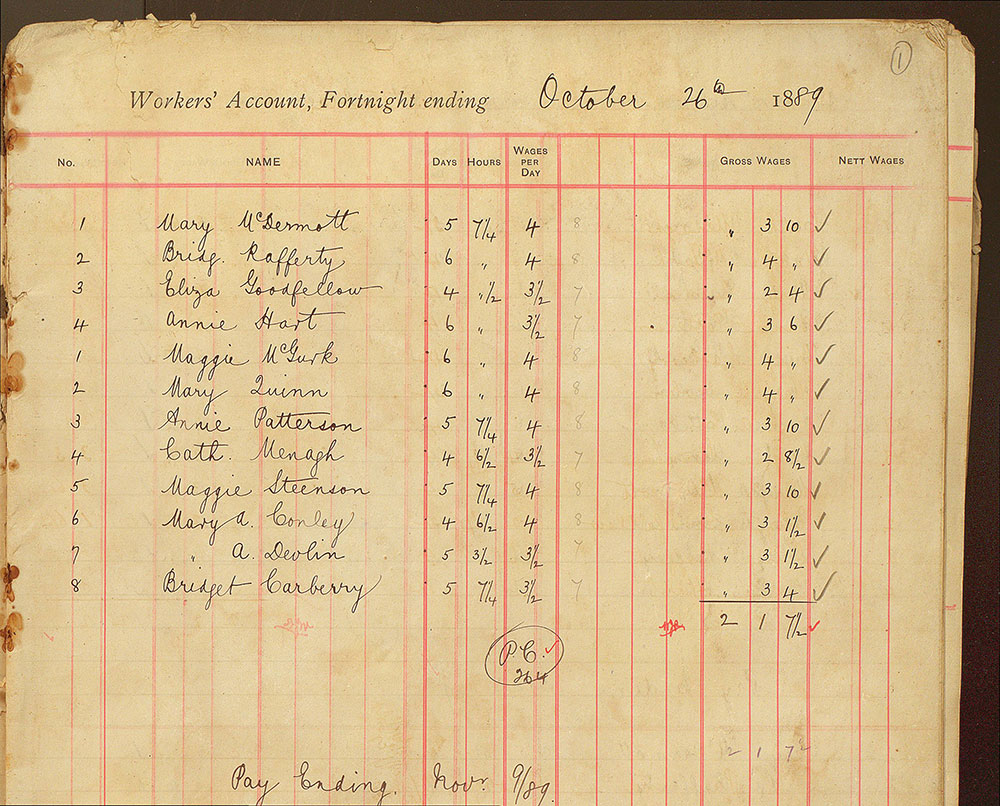 1
Workers' Account, Fortnight ending October 26th 1889
No. NAME DAYS HOURS WAGES PER DAY GROSS WAGES NETT WAGES
1 Mary McDermott 5 7 1/4 4 8 " 3 10 ✓
2 Bridg. Rafferty 6 " 4 8 " 4 " ✓
3 Eliza Goodfellow 4 " 1/2 3 1/2 7 " 2 4 ✓
4 Annie Hart 6 " 3 1/2 7 " 3 6 ✓
1 Maggie McGurk 6 " 4 8 " 4 " ✓
2 Mary Quinn 6 " 4 8 " 4 " ✓
3 Annie Patterson 5 7 1/4 4 8 " 3 10 ✓
4 Cath. Menagh 4 6 1/2 3 1/2 7 " 2 8 1/2 ✓
5 Maggie Steenson 5 7 1/4 4 8 " 3 10 ✓
6 Mary A. Conley 4 6 1/2 4 8 " 3 1 1/2 ✓
7 " A. Devlin 5 3 1/2 3 1/2 7 " 3 1 1/2 ✓
8 Bridget Carberry 5 7 1/4 3 1/2 7 " 3 4 ✓
2 1 7 1/2 ✓
P.C. ✓
264
2 1 7
Pay Ending. Novr. 9/89.